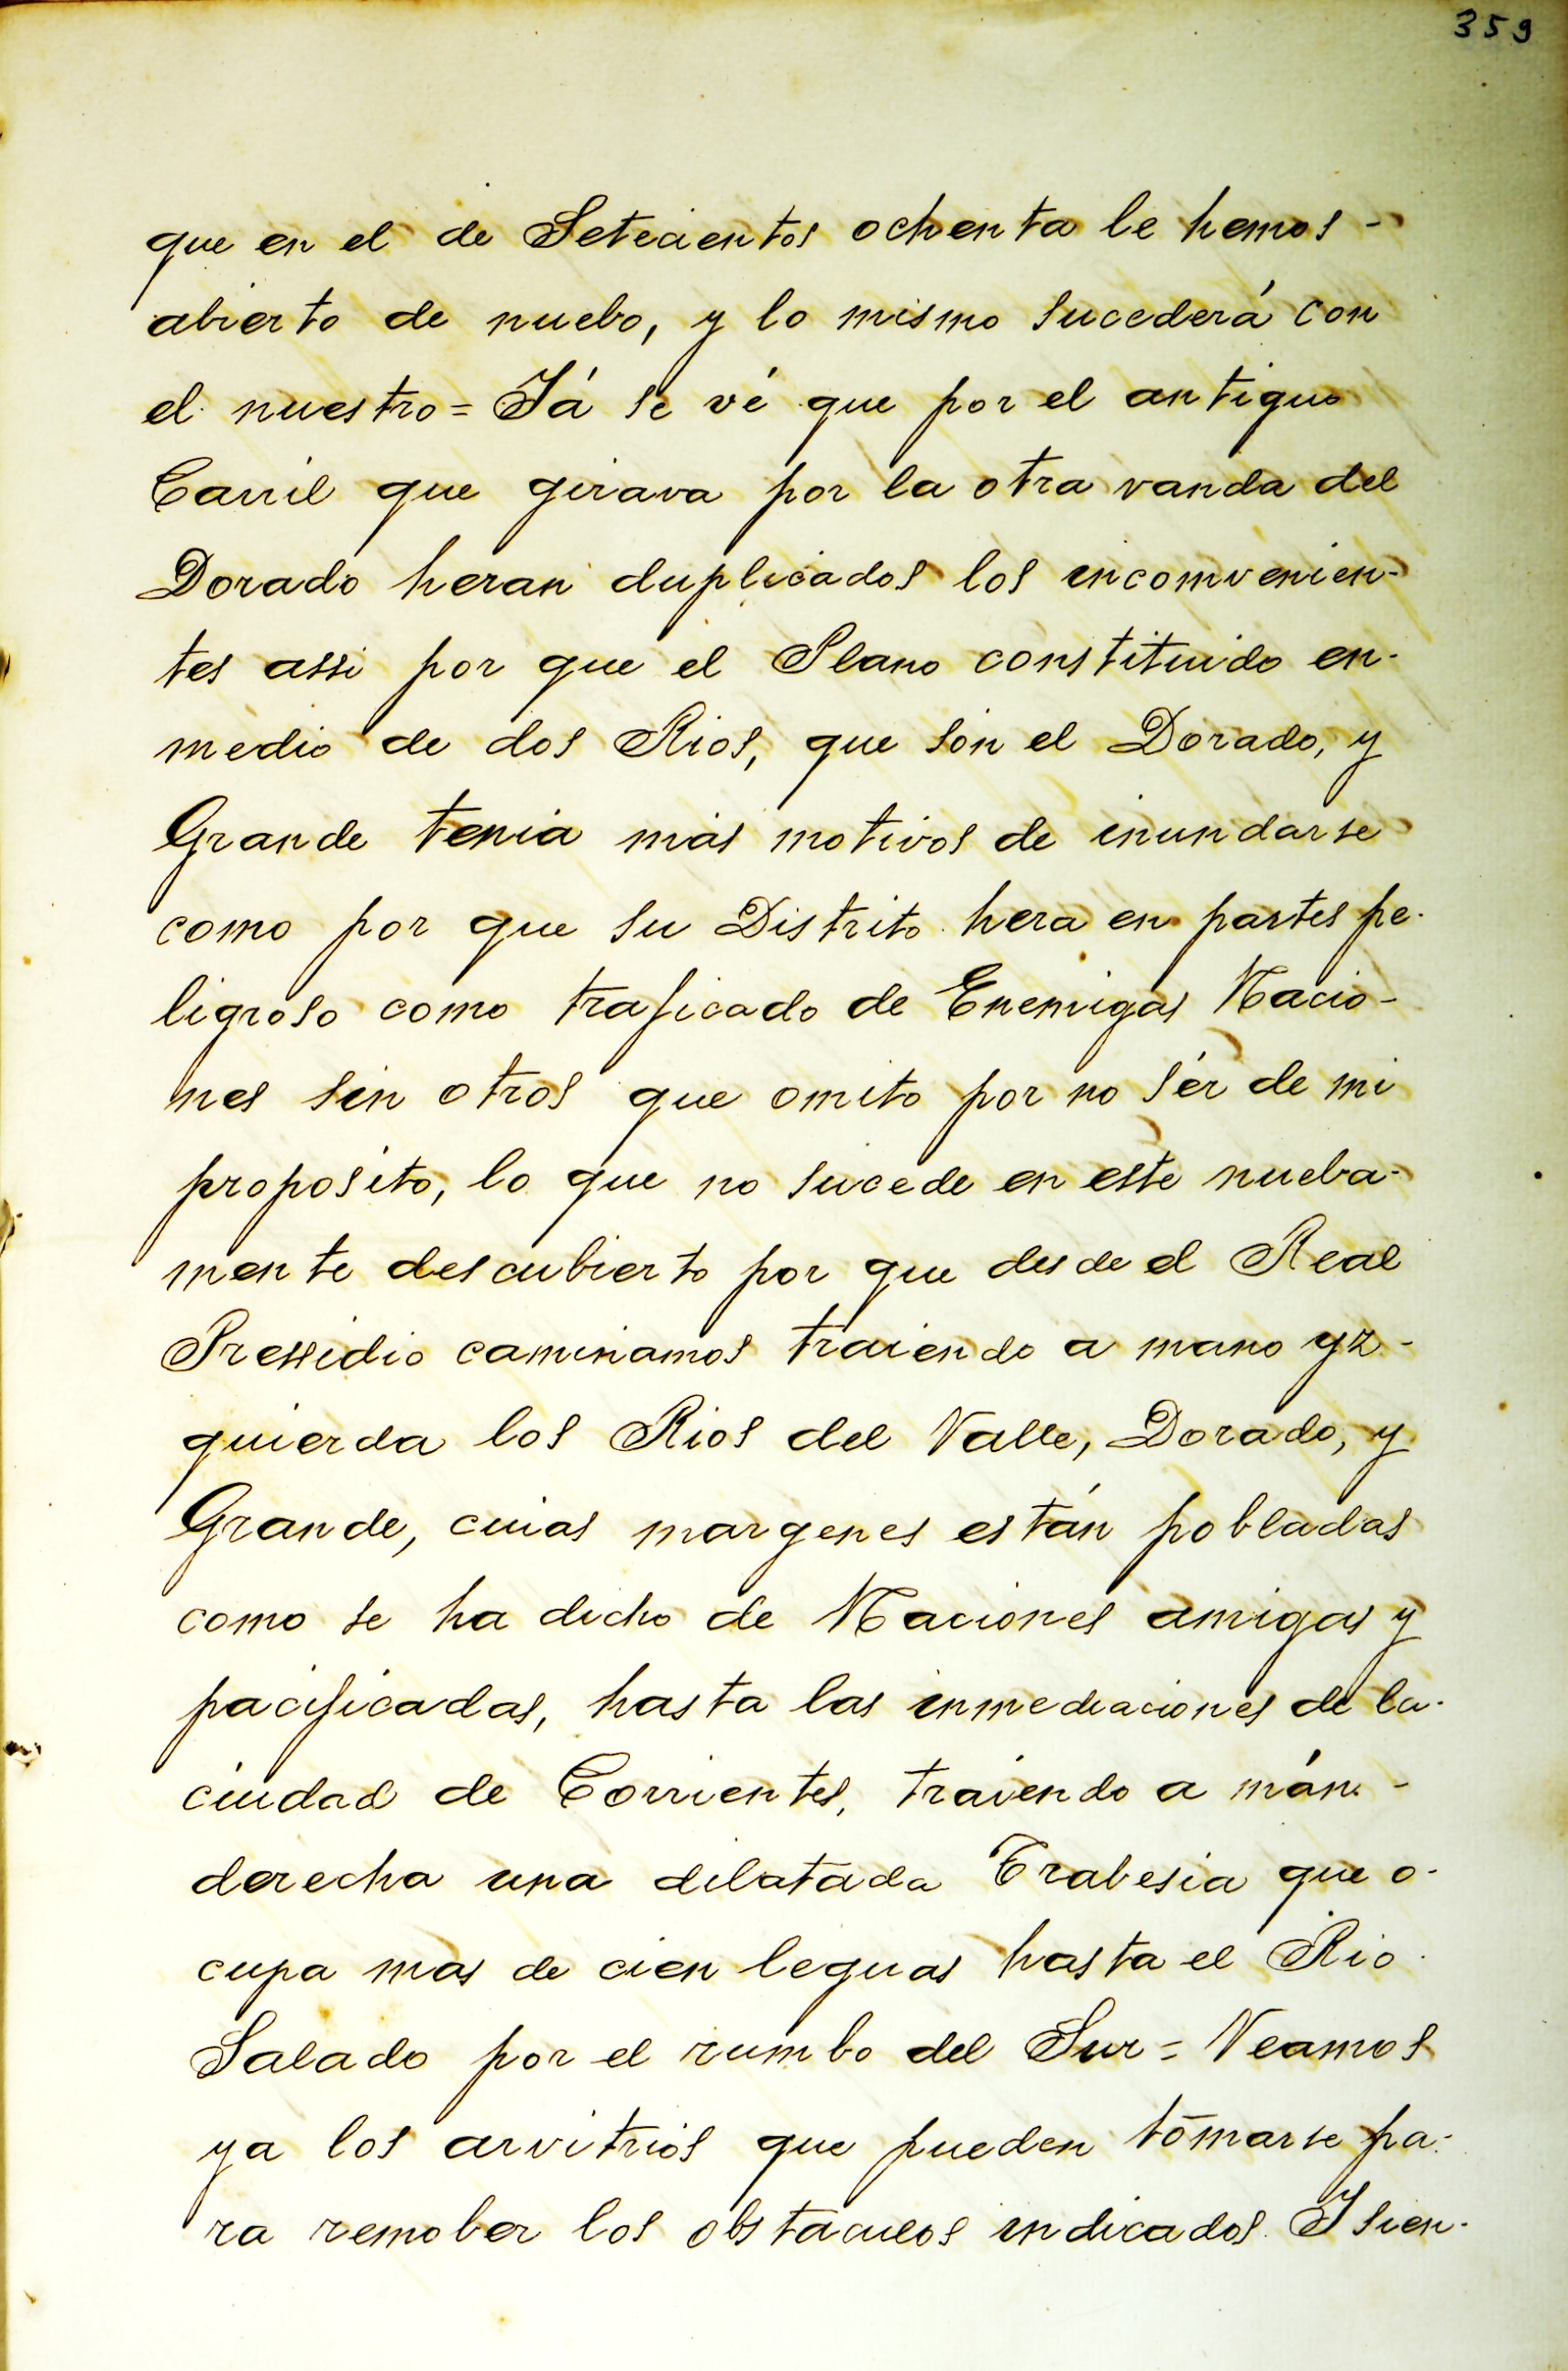 359
que en el de Setecientos ochenta le hemos-
abierto de nuebo, y lo mismo sucederá con
el nuestro= Iá se vé que por el antiguo
Carril que girava por la otra vanda del
Dorado heran duplicados los incomvenien-
tes assi por que el Plano constituido en-
medio de dos Rios, que són el Dorado, y
Grande tenia más motivos de inundarse
como por que su Distrito hera en partes pe-
ligroso como traficado de Enemigas Nacio-
nes sin otros que omito por no sér de mi
proposito, lo que no sucede en este nueba-
mente descubierto por que desde el Real
Pressidio caminamos traiendo a mano yz-
quierda los Rios del Valle, Dorado, y
Grande, cuias margenes están pobladas
como se ha dicho de Naciones amigas y
pacificadas, hasta las inmediaciones de la-
ciudad de Corrientes, traiendo a mán-
derecha una dilatada Trabesia que o-
cupa mas de cien leguas hasta el Rio
Salado por el rumbo del Sur= Veamos
ya los arvitrios que pueden tomarse pa-
ra remober los obstaculos indicados. I sien-